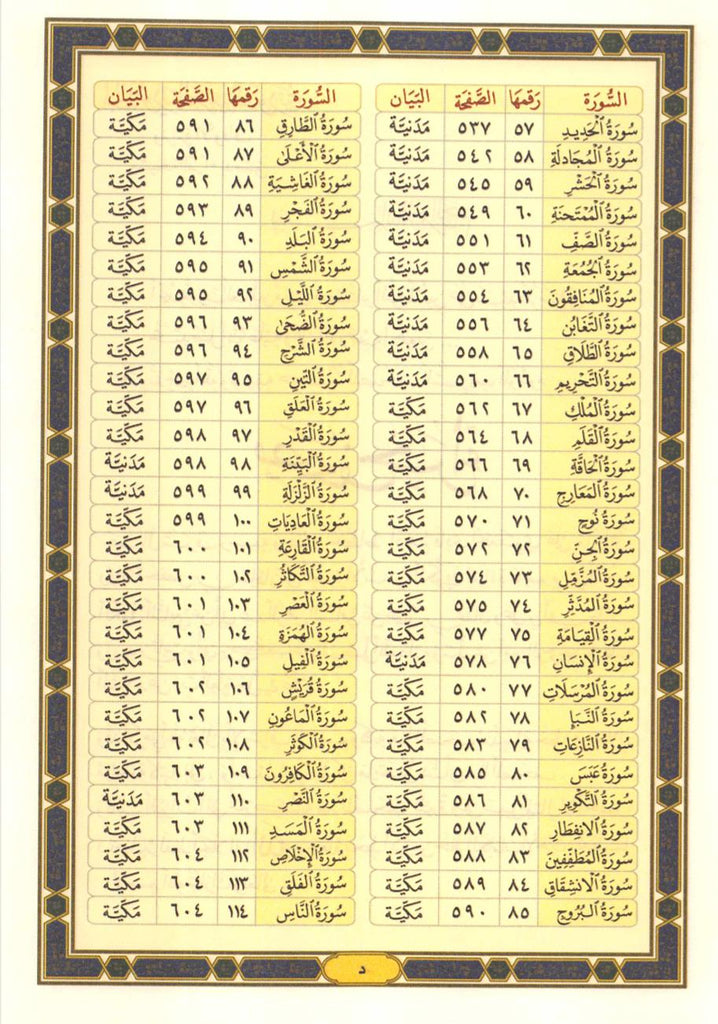 السُّورَة رَقمهَا الصَّفحَة البَيَان
سُورَةُ الْحَدِيدِ ٥٧ ٥٣٧ مَدَنيَّة
سُورَةُ الْمُجَادلَةِ ٥٨ ٥٤٢ مَدَنيَّة
سُورَةُ الْحَشْرِ ٥٩ ٥٤٥ مَدَنيَّة
سُورَةُ الْمُمْتَحنَةِ ٦٠ ٥٤٩ مَدَنيَّة
سُورَةُ الصَّفِّ ٦١ ٥٥١ مَدَنيَّة
سُورَةُ الْجُمُعَةِ ٦٢ ٥٥٣ مَدَنيَّة
سُورَةُ الْمُنَافِقُونَ ٦٣ ٥٥٤ مَدَنيَّة
سُورَةُ التَّغَابُن ٦٤ ٥٥٦ مَدَنيَّة
سُورَةُ الطَّلَاقِ ٦٥ ٥٥٨ مَدَنيَّة
سُورَةُ التَّحْرِيمِ ٦٦ ٥٦٠ مَدَنيَّة
سُورَةُ الْمُلْكِ ٦٧ ٥٦٢ مَكيَّة
سُورَةُ الْقَلَمِ ٦٨ ٥٦٤ مَكيَّة
سُورَةُ الْحَاقَّةِ ٦٩ ٥٦٦ مَكيَّة
سُورَةُ الْمَعَارِجِ ٧٠ ٥٦٨ مَكيَّة
سُورَةُ نُوحٍ ٧١ ٥٧٠ مَكيَّة
سُورَةُ الْجِنِّ ٧٢ ٥٧٢ مَكيَّة
سُورَةُ الْمُزَّمِّلِ ٧٣ ٥٧٤ مَكيَّة
سُورَةُ الْمُدَّثِّرِ ٧٤ ٥٧٥ مَكيَّة
سُورَةُ الْقِيَامَةِ ٧٥ ٥٧٧ مَكيَّة
سُورَةُ الْإِنْسَانِ ٧٦ ٥٧٨ مَدَنيَّة
سُورَةُ الْمُرْسَلَاتِ ٧٧ ٥٨٠ مَكيَّة
سُورَةُ النَّبَإِ ٧٨ ٥٨٢ مَكيَّة
سُورَةُ النَّازِعَاتِ ٧٩ ٥٨٣ مَكيَّة
سُورَةُ عَبَسَ ٨٠ ٥٨٥ مَكيَّة
سُورَةُ التَّكْوِيرِ ٨١ ٥٨٦ مَكيَّة
سُورَةُ الانفِطَارِ ٨٢ ٥٨٧ مَكيَّة
سُورَةُ الْمُطَفِّفِينَ ٨٣ ٥٨٨ مَكيَّة
سُورَةُ الانشِقَاقِ ٨٤ ٥٨٩ مَكيَّة
سُورَةُ الْبُرُوجِ ٨٥ ٥٩٠ مَكيَّة
السُّورَة رَقمهَا الصَّفحَة البَيَان
سُورَةُ الطَّارِقِ ٨٦ ٥٩١ مَكيَّة
سُورَةُ الْأَعْلَى ٨٧ ٥٩١ مَكيَّة
سُورَةُ الْغَاشِيَةِ ٨٨ ٥٩٢ مَكيَّة
سُورَةُ الْفَجْرِ ٨٩ ٥٩٣ مَكيَّة
سُورَةُ الْبَلَدِ ٩٠ ٥٩٤ مَكيَّة
سُورَةُ الشَّمْسِ ٩١ ٥٩٥ مَكيَّة
سُورَةُ اللَّيْلِ ٩٢ ٥٩٥ مَكيَّة
سُورَةُ الضُّحَى ٩٣ ٥٩٦ مَكيَّة
سُورَةُ الشَّرْحِ ٩٤ ٥٩٦ مَكيَّة
سُورَةُ التِّينِ ٩٥ ٥٩٧ مَكيَّة
سُورَةُ الْعَلَقِ ٩٦ ٥٩٧ مَكيَّة
سُورَةُ الْقَدْرِ ٩٧ ٥٩٨ مَكيَّة
سُورَةُ الْبَيِّنَةِ ٩٨ ٥٩٨ مَدَنيَّة
سُورَةُ الزَّلْزَلَةِ ٩٩ ٥٩٩ مَدَنيَّة
سُورَةُ الْعَادِيَاتِ ١٠٠ ٥٩٩ مَكيَّة
سُورَةُ الْقَارِعَةِ ١٠١ ٦٠٠ مَكيَّة
سُورَةُ التَّكَاثُرِ ١٠٢ ٦٠٠ مَكيَّة
سُورَةُ الْعَصْرِ ١٠٣ ٦٠١ مَكيَّة
سُورَةُ الْهُمَزَةِ ١٠٤ ٦٠١ مَكيَّة
سُورَةُ الْفِيلِ ١٠٥ ٦٠١ مَكيَّة
سُورَةُ قُرَيْشٍ ١٠٦ ٦٠٢ مَكيَّة
سُورَةُ الْمَاعُونِ ١٠٧ ٦٠٢ مَكيَّة
سُورَةُ الْكَوْثَرِ ١٠٨ ٦٠٢ مَكيَّة
سُورَةُ الْكَافِرُونَ ١٠٩ ٦٠٣ مَكيَّة
سُورَةُ النَّصْرِ ١١٠ ٦٠٣ مَدَنيَّة
سُورَةُ الْمَسَدِ ١١١ ٦٠٣ مَكيَّة
سُورَةُ الْإِخْلَاصِ ١١٢ ٦٠٤ مَكيَّة
سُورَةُ الْفَلَقِ ١١٣ ٦٠٤ مَكيَّة
سُورَةُ النَّاسِ ١١٤ ٦٠٤ مَكيَّة
د